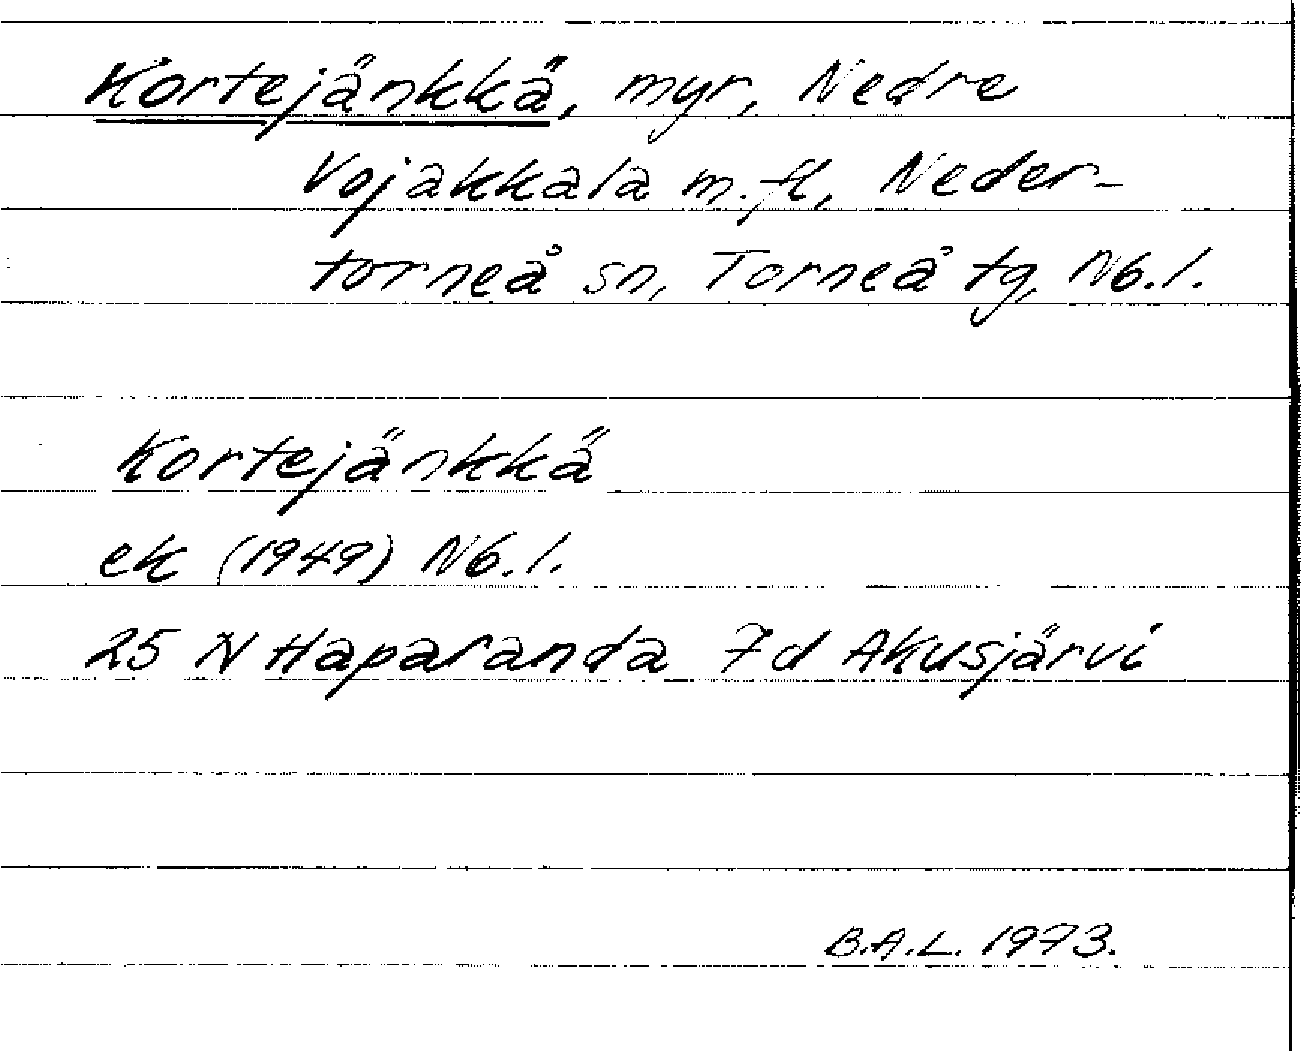 Kortejänkkä, myr, Nedre
Vojakkala m.fl, Neder-
torneå sn, Torneå tg, Nb.l.
Kortejänkkä
ek (1949) Nb.l.
25 N Haparanda 7d Akusjärvi
B.A.L. 1973.